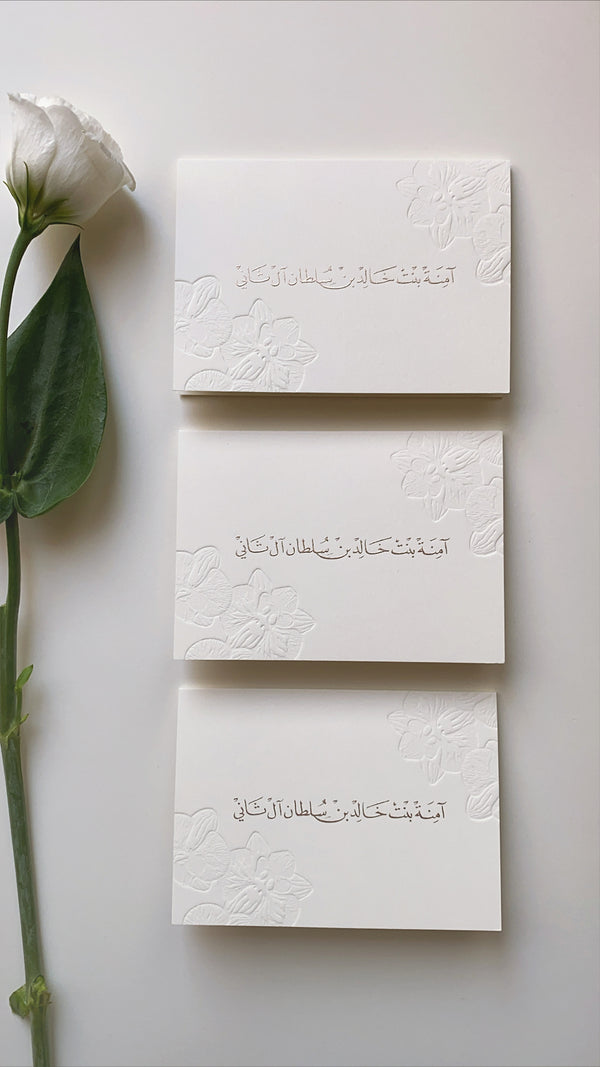 آمِنَة بِنْت خَالِد بِن سُلطان آل ثَاني
آمِنَة بِنْت خَالِد بِن سُلطان آل ثَاني
آمِنَة بِنْت خَالِد بِن سُلطان آل ثَاني